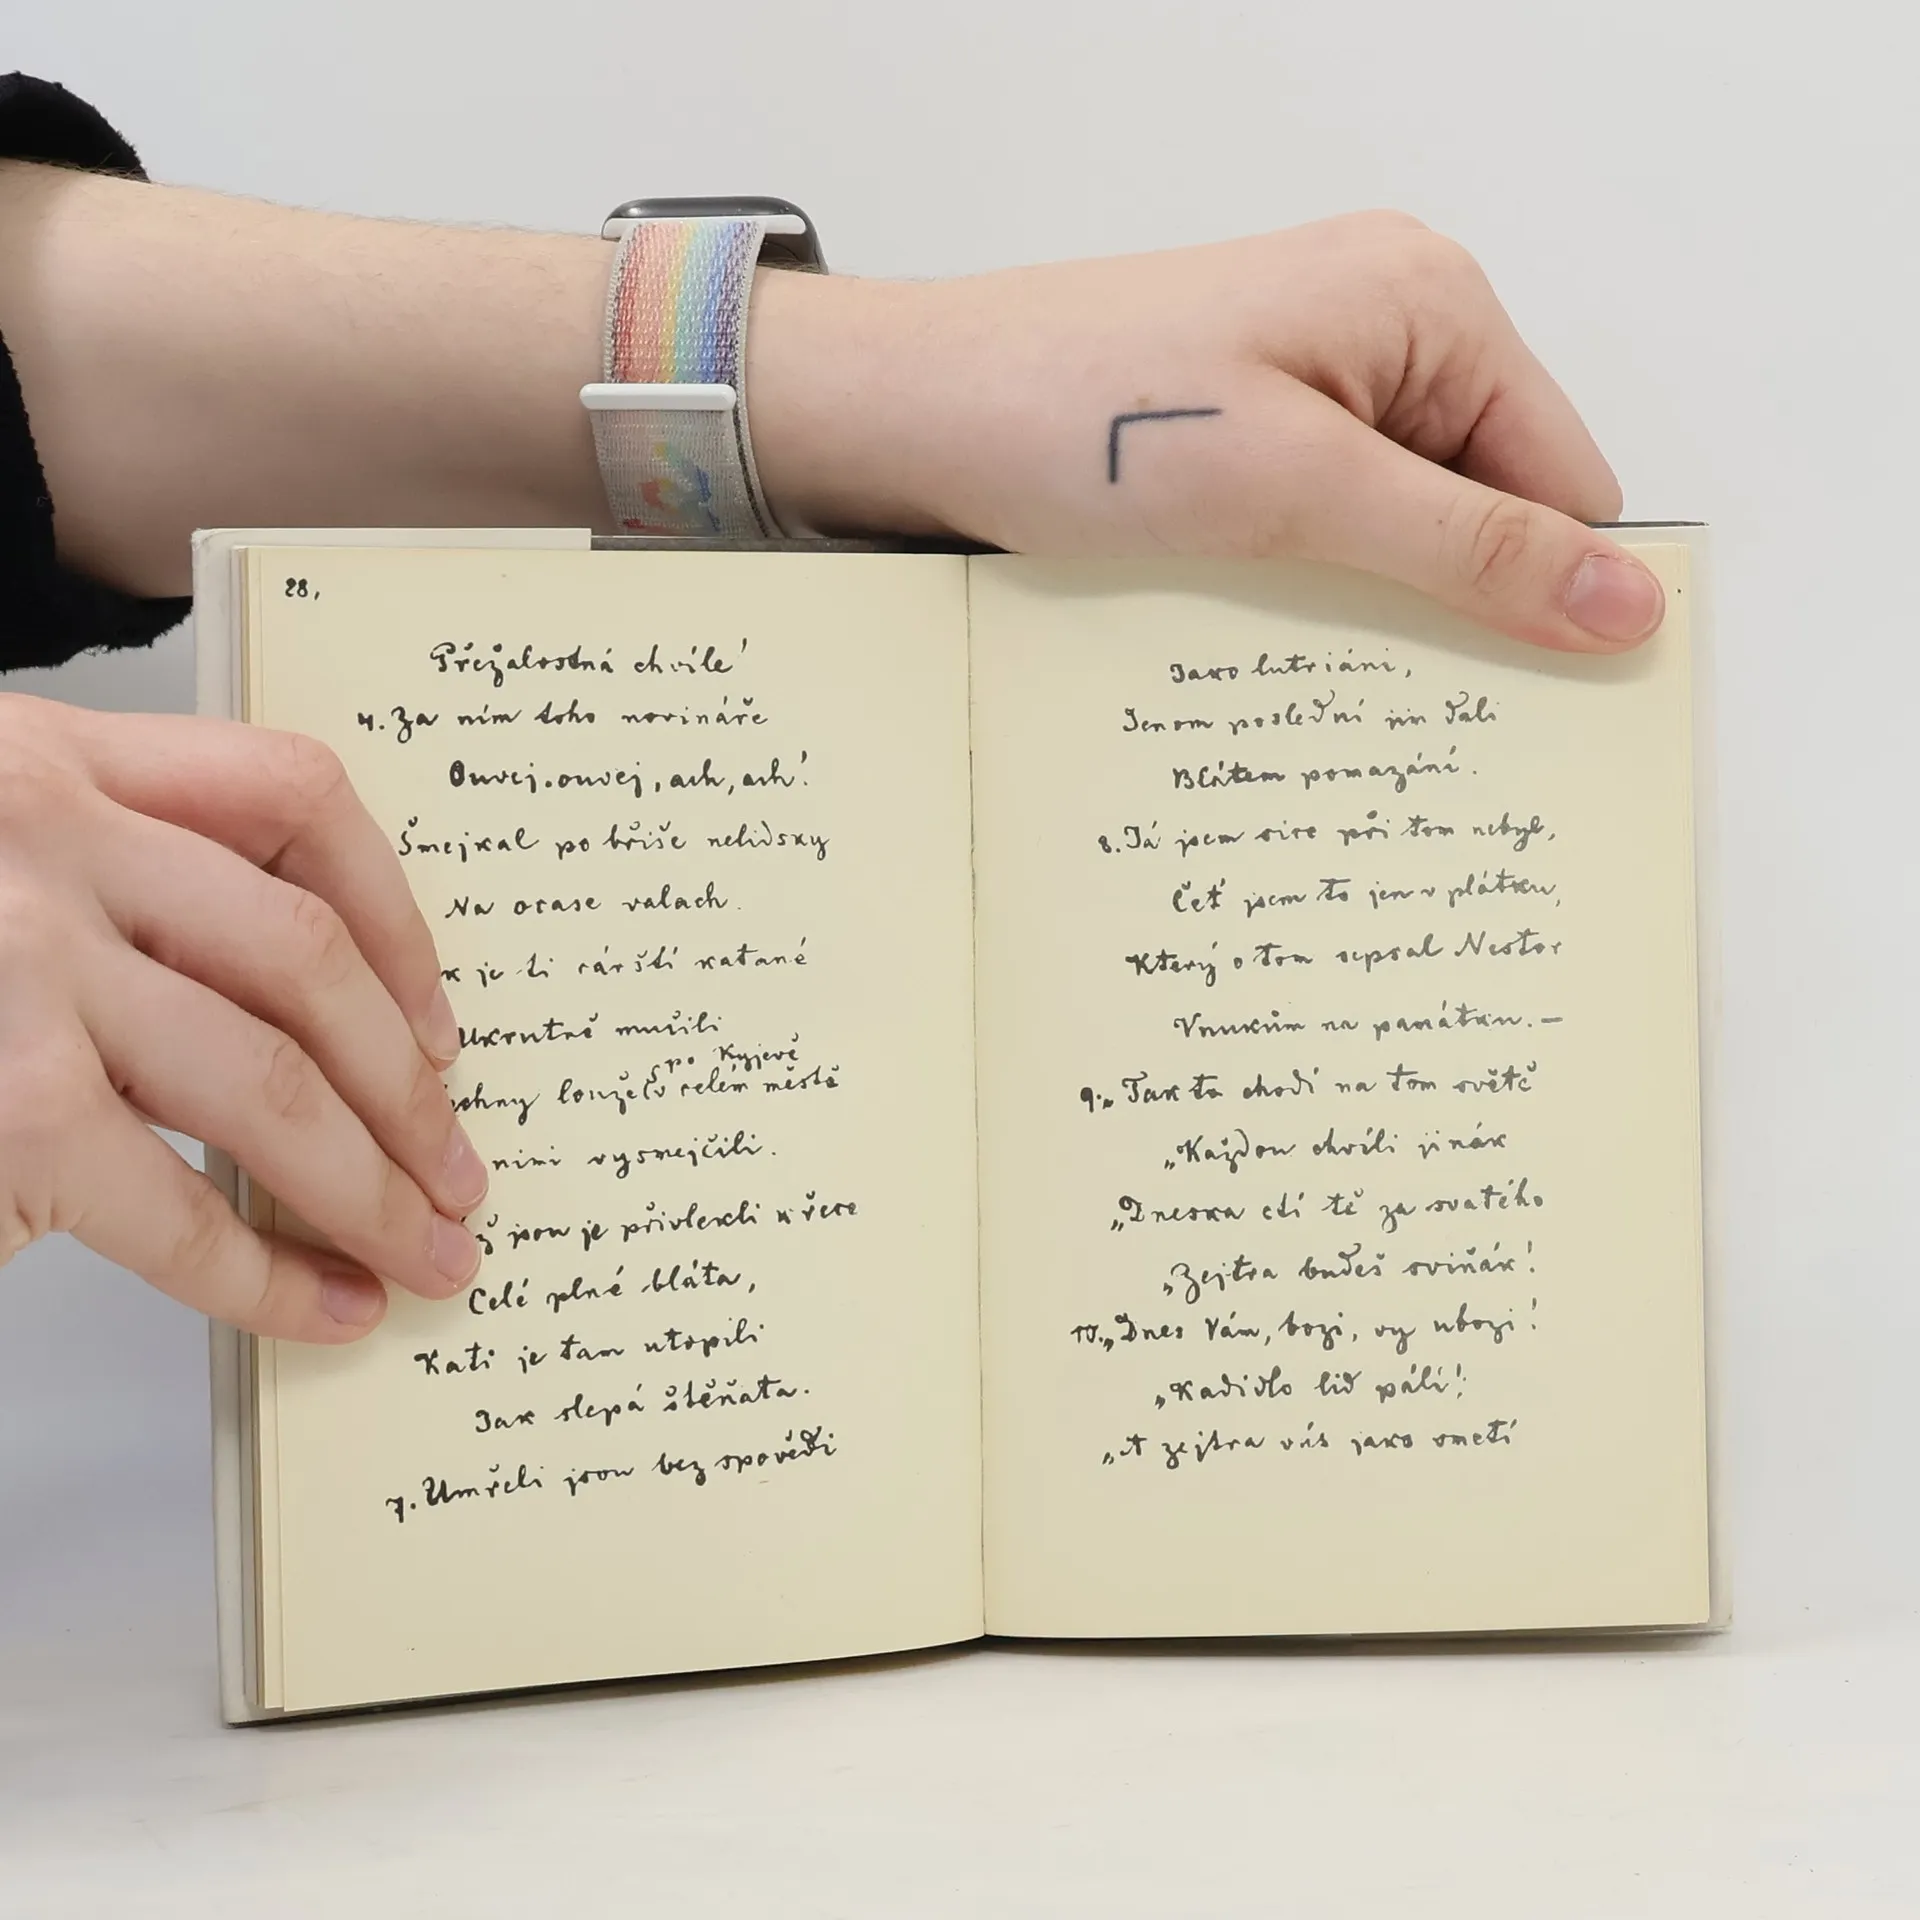 28,
Přežalostná chvíle!
4. Za ním toho novináře
Ouvej, ouvej, ach, ach!
Šmejkal po břiše nelidsky
Na ocase valach.
k je ti cárští katané
Ukrutně mučili
po Kyjevě
louže v celém městě
nimi vysmejčili.
ž jsou je přivlekli k řece
Celé plné bláta,
Kati je tam utopili
Jak slepá štěňata.
7. Umřeli jsou bez spovědi
Jako lutriáni,
Jenom poslední jim dali
Blátem pomazání.
8. Já jsem sice při tom nebyl,
Čet' jsem to jen v plátku,
Který o tom sepsal Nestor
Vnukům na památku. —
9. „Tak to chodí na tom světě
„Každou chvíli jinák
„Dneska ctí tě za svatého
„Zejtra budeš sviňák!
10. „Dnes Vám, bozi, vy ubozi!
„Kadidlo lid pálí!
„A zejtra vás jako smetí